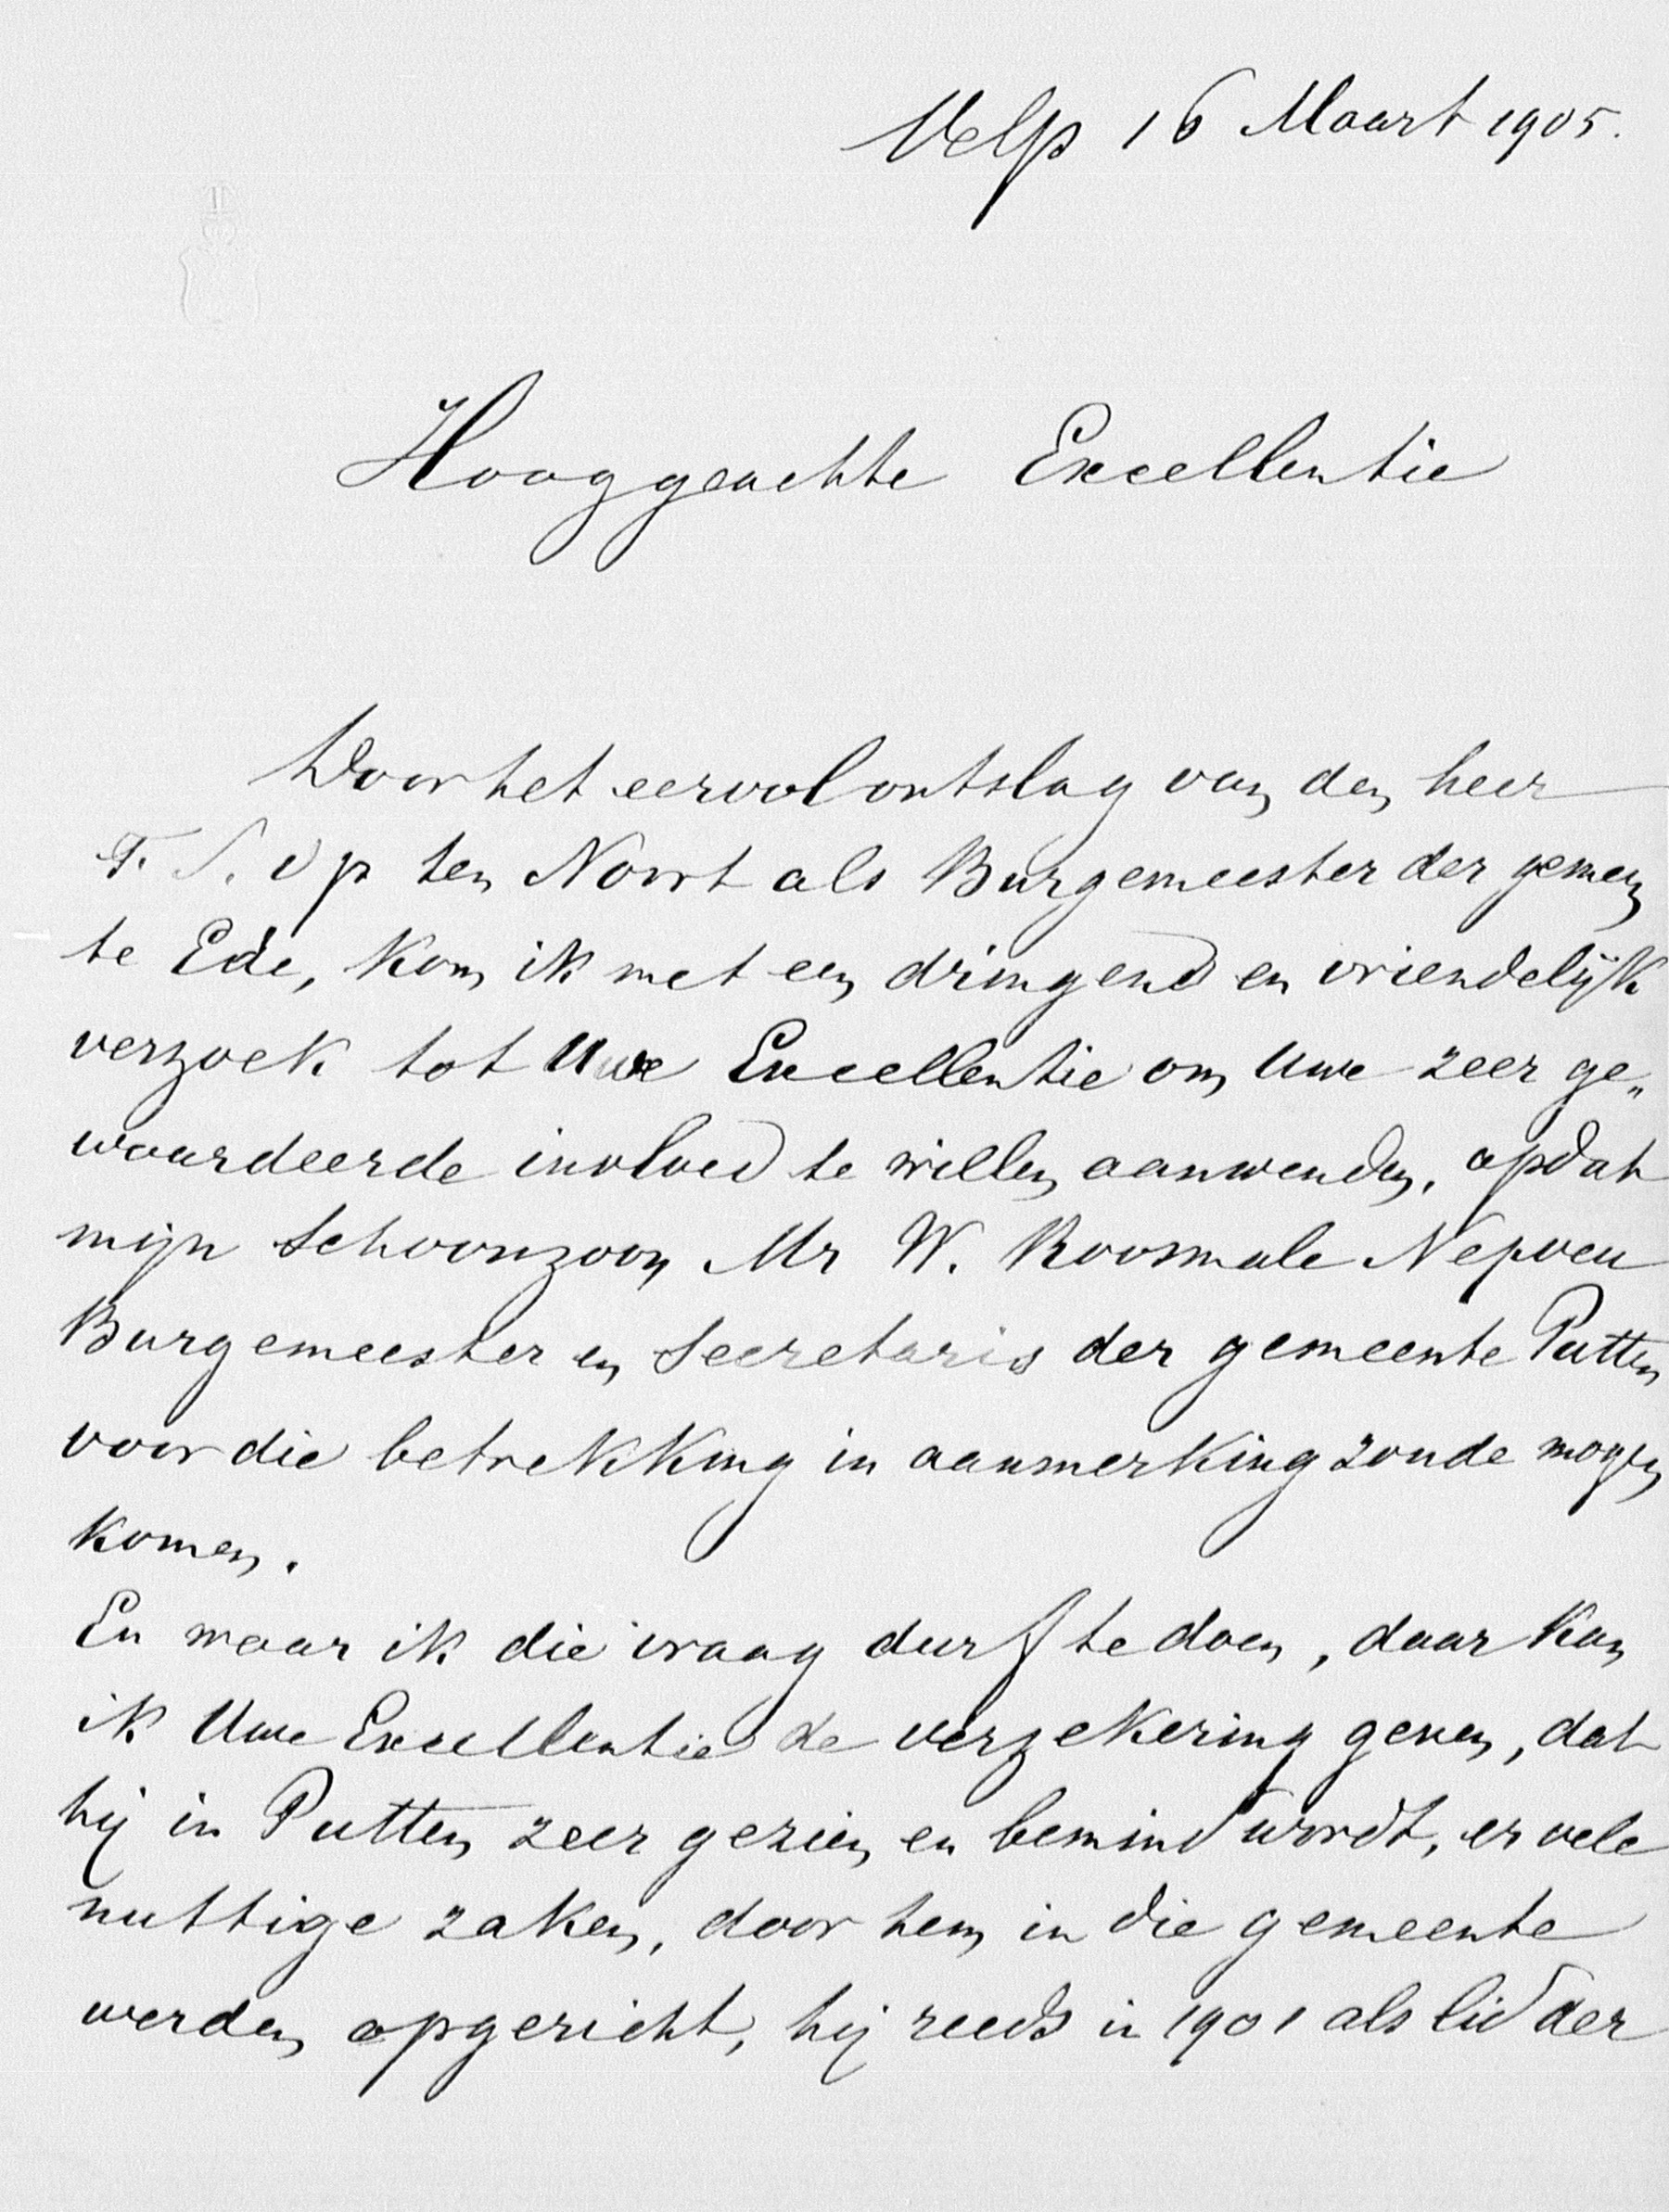 Velp 16 Maart 1905.
Hooggeachte Excellentie
Door het eervol ontslag van den heer
T. S. Op ten Noort als Burgemeester der gemeen
te Ede, kom ik met een dringend en vriendelijk
verzoek tot Uwe Excellentie om Uwe zeer ge„
waardeerde invloed te willen aanwenden, opdat
mijn Schoonzoon Mr W. Roosmale Nepveu
Burgemeester en Secretaris der gemeente Putten
voor die betrekking in aanmerking zoude mogen
komen.
En waar ik die vraag durf te doen, daar kan
ik Uwe Excellentie de verzekering geven, dat
hij in Putten zeer gezien en bemind wordt, er vele
nuttige zaken, door hem in die gemeente
werden opgericht, hij reeds in 1901 als lid der